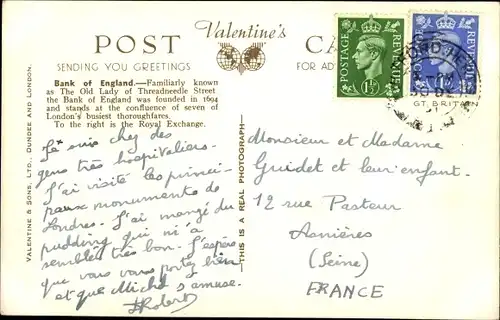 POST
Valentine's
CA
SENDING YOU GREETINGS
FOR AD
Bank of England.—Familiarly known
as The Old Lady of Threadneedle Street
the Bank of England was founded in 1694
and stands at the confluence of seven of
London's busiest thoroughfares.
To the right is the Royal Exchange.
VALENTINE & SONS, LTD., DUNDEE AND LONDON.
THIS IS A REAL PHOTOGRAPH
POSTAGE
REVENUE
1½
POSTAGE
REVENUE
GT. BRITAIN
Je suis chez des
gens très hospitaliers.
J'ai visité les princi-
paux monuments de
Londres. J'ai mangé du
pudding qui m'a
semblé très bon. J'espère
que vous vous portez bien
et que Michel s'amuse.
Robert
Monsieur et Madame
Guidet et leur enfant.
12 rue Pasteur
Asnières
(Seine)
FRANCE